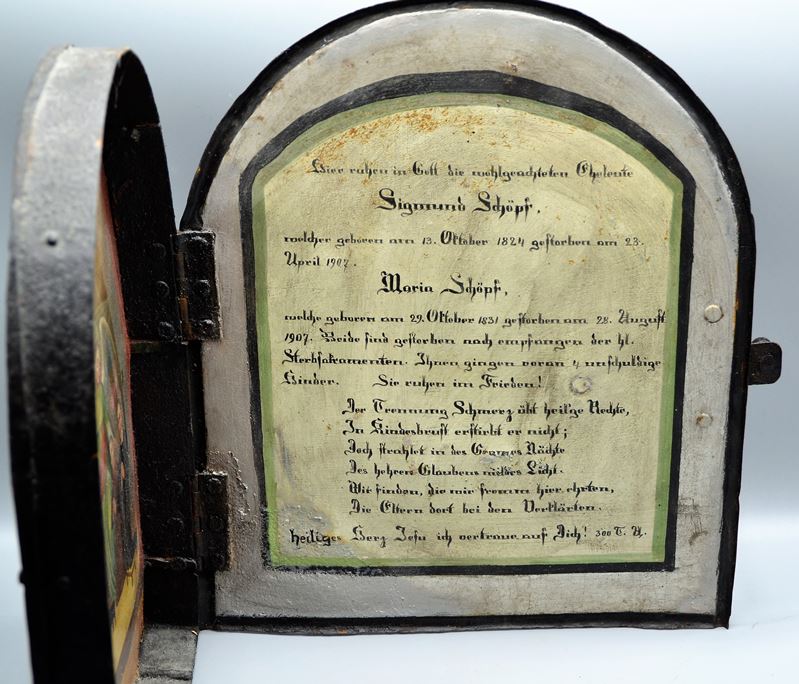 Hier ruhen in Gott die wohlgeachteten Eheleute
Sigmund Schöpf,
welcher geboren am 13. Oktober 1824 gestorben am 23.
April 1907.
Maria Schöpf,
welche geboren am 29. Oktober 1831 gestorben am 28. August
1907. Beide sind gestorben nach empfangen der hl.
Sterbsakramenten. Ihnen gingen voran 4 unschuldige
Kinder. Sie ruhen im Frieden!
Der Trennung Schmerz übt heil'ge Rechte,
In Kindesbrust erstirbt er nicht;
Doch strahlet in des Grames Nächte
Des hehren Glaubens mildes Licht.
Wir finden, die wir fromm hier ehrten,
Die Eltern dort bei den Verklärten.
heiliges Herz Jesu ich vertraue auf Dich! 300 T. A.